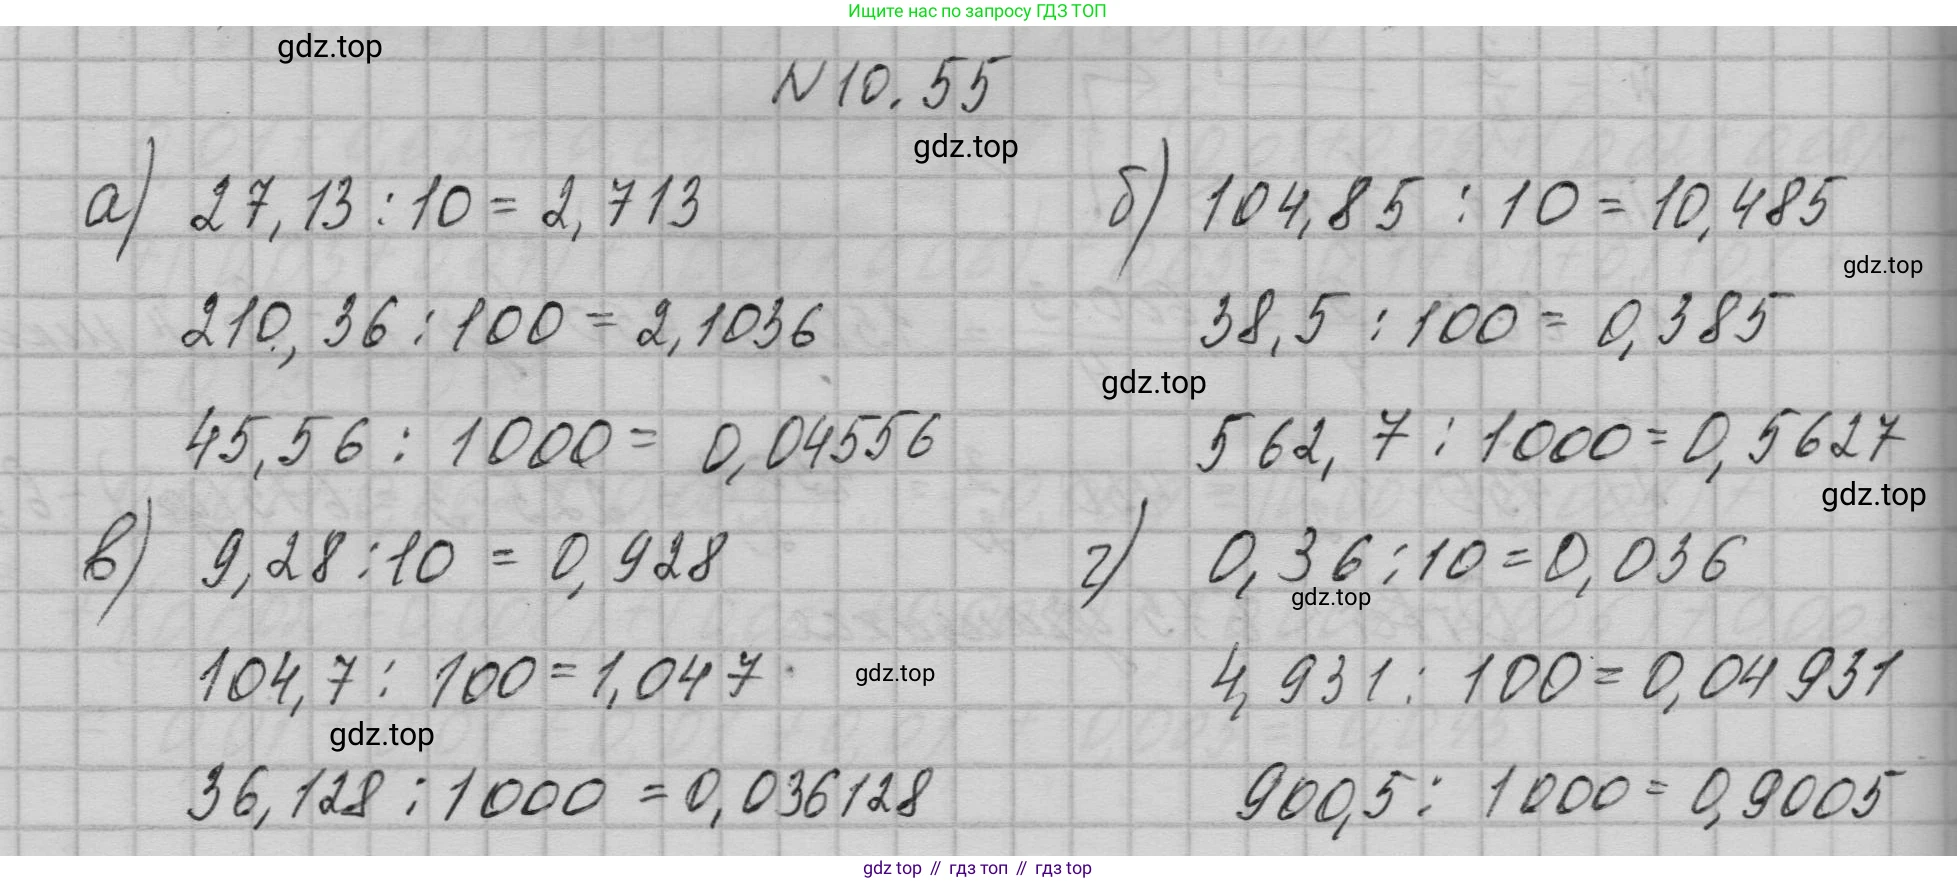 Ищите нас по запросу ГДЗ ТОП
gdz.top
N 10.55
gdz.top
а) 27,13 : 10 = 2,713
210,36 : 100 = 2,1036
45,56 : 1000 = 0,04556
б) 104,85 : 10 = 10,485
gdz.top
38,5 : 100 = 0,385
gdz.top
562,7 : 1000 = 0,5627
gdz.top
в) 9,28 : 10 = 0,928
104,7 : 100 = 1,047
gdz.top
gdz.top
36,128 : 1000 = 0,036128
г) 0,36 : 10 = 0,036
gdz.top
4,931 : 100 = 0,04931
900,5 : 1000 = 0,9005
gdz top // гдз топ // гдз top